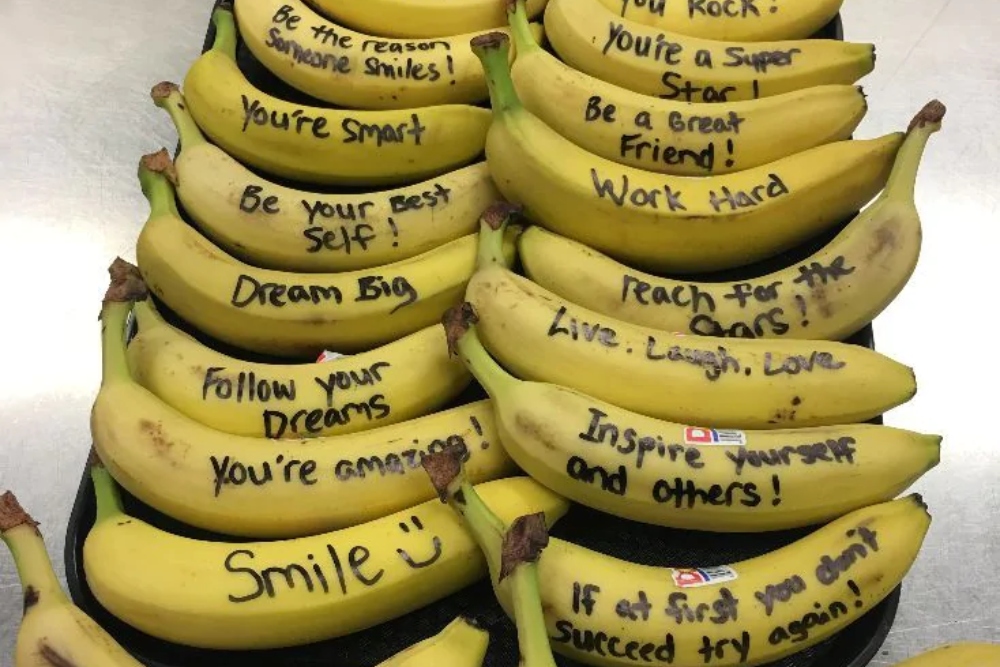 Be the reason
Someone Smiles!
You're Smart
Be your Best
Self!
Dream Big
Follow your
Dreams
You're amazing!
Smile
You Rock!
You're a Super
Star!
Be a Great
Friend!
Work Hard
reach for the
Stars!
Live. Laugh. Love
Inspire yourself
and others!
If at first you don't
succeed try again!